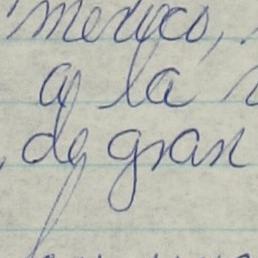 medico,
a la
de gran